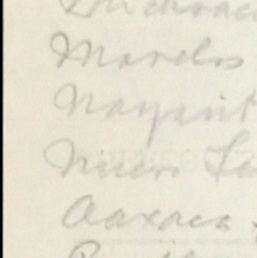 Morelos
Nayarit
Nuevo Le
Oaxaca